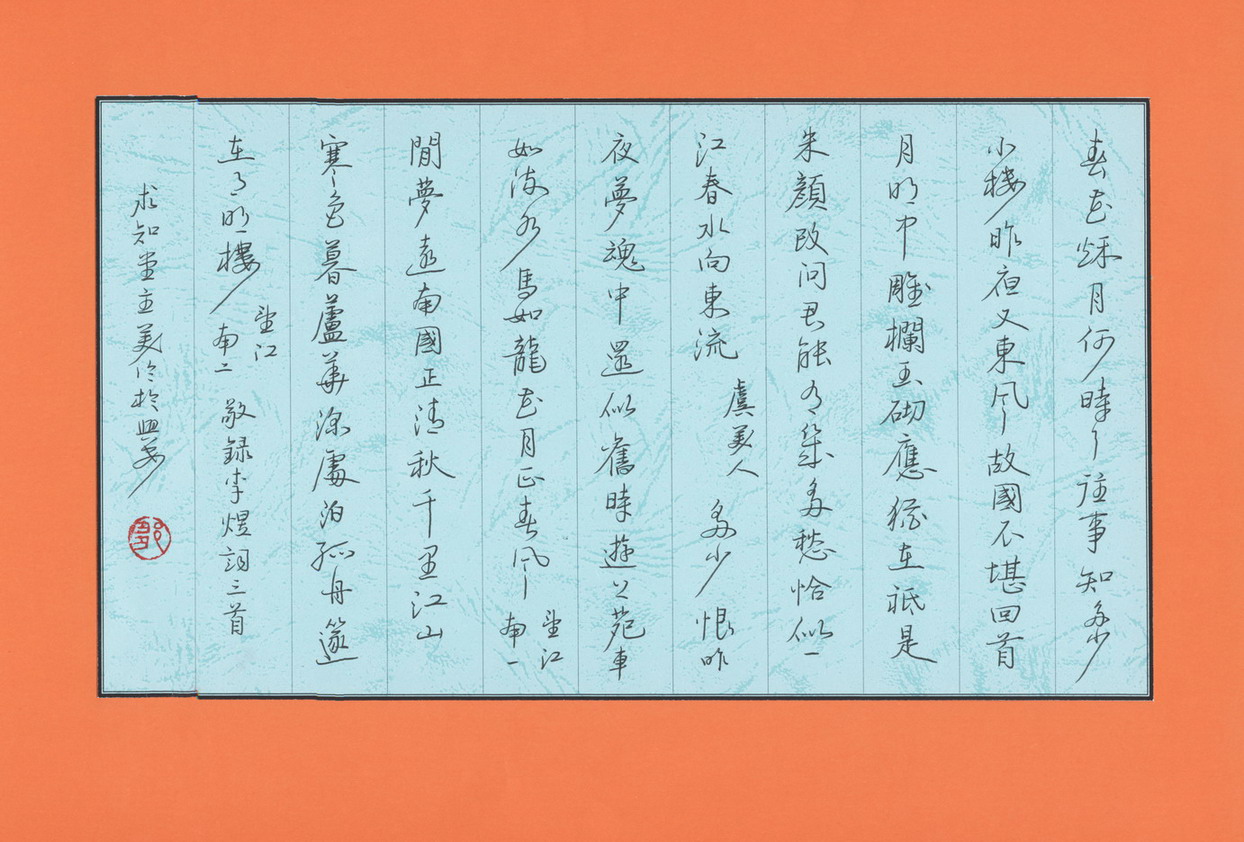 春花秋月何時了往事知多少
小楼昨夜又東風故國不堪回首
月明中雕欄玉砌應猶在祗是
朱顏改问君能有幾多愁恰似一
江春水向東流 虞美人 多少恨昨
夜夢魂中還似舊時遊上苑車
如流水馬如龍花月正春風 望江南一
閒夢遠南國正清秋千里江山
寒色暮蘆華深處泊孤舟篴
在月明樓 望江南二 敬録李煜詞三首
求知堂主美伶於
鄒